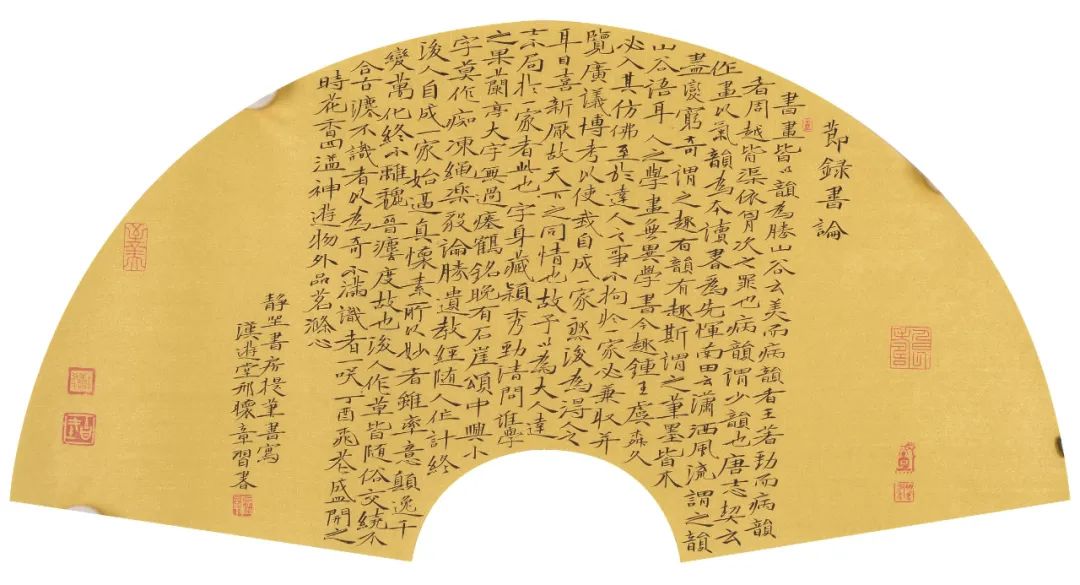 節錄書論
書畫皆以韻為勝山谷云美而病韻者王著勁而病韻
者周越皆渠依胃次之罪也病韻謂少韻也唐志契云
作畫以氣韻為本讀書為先惲南田云瀟洒風流謂之韻
盡變窮奇謂之趣有韻有趣斯謂之筆墨皆木
山谷語耳 人之學畫無異學書今趣鍾王虞久
必入其仿佛至於達人大事不拘於一家必兼收并
覽廣議博考以使我自成一家然後為得人之
耳目喜新厭故天下之同情也故予以為大人達
士不局於一家者此也 字身藏穎秀勁清問誰學
之果蘭亭大字無過瘞鶴銘晚有石崖頌中興小
字莫作痴凍蠅樂毅論勝遺教經隨人作計終
後人自成一家始逼真懷素所以妙者雖率意顛逸千
變萬化終不離魏晉度故也後人作草皆隨俗交繞不
合古不識者以為奇不滿識者一咲 丁酉花盛開之
時花香四溢神遊物外品茗滌心
靜坐書房提筆書寫
漢遊堂邢懷章習書